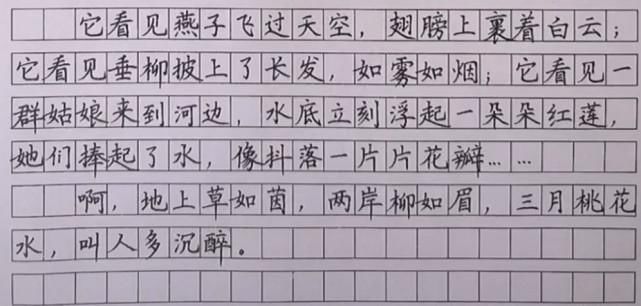 它看见燕子飞过天空，翅膀上裹着白云；
它看见垂柳披上了长发，如雾如烟；它看见一
群姑娘来到河边，水底立刻浮起一朵朵红莲，
她们捧起了水，像抖落一片片花瓣……
啊，地上草如茵，两岸柳如眉，三月桃花
水，叫人多沉醉。